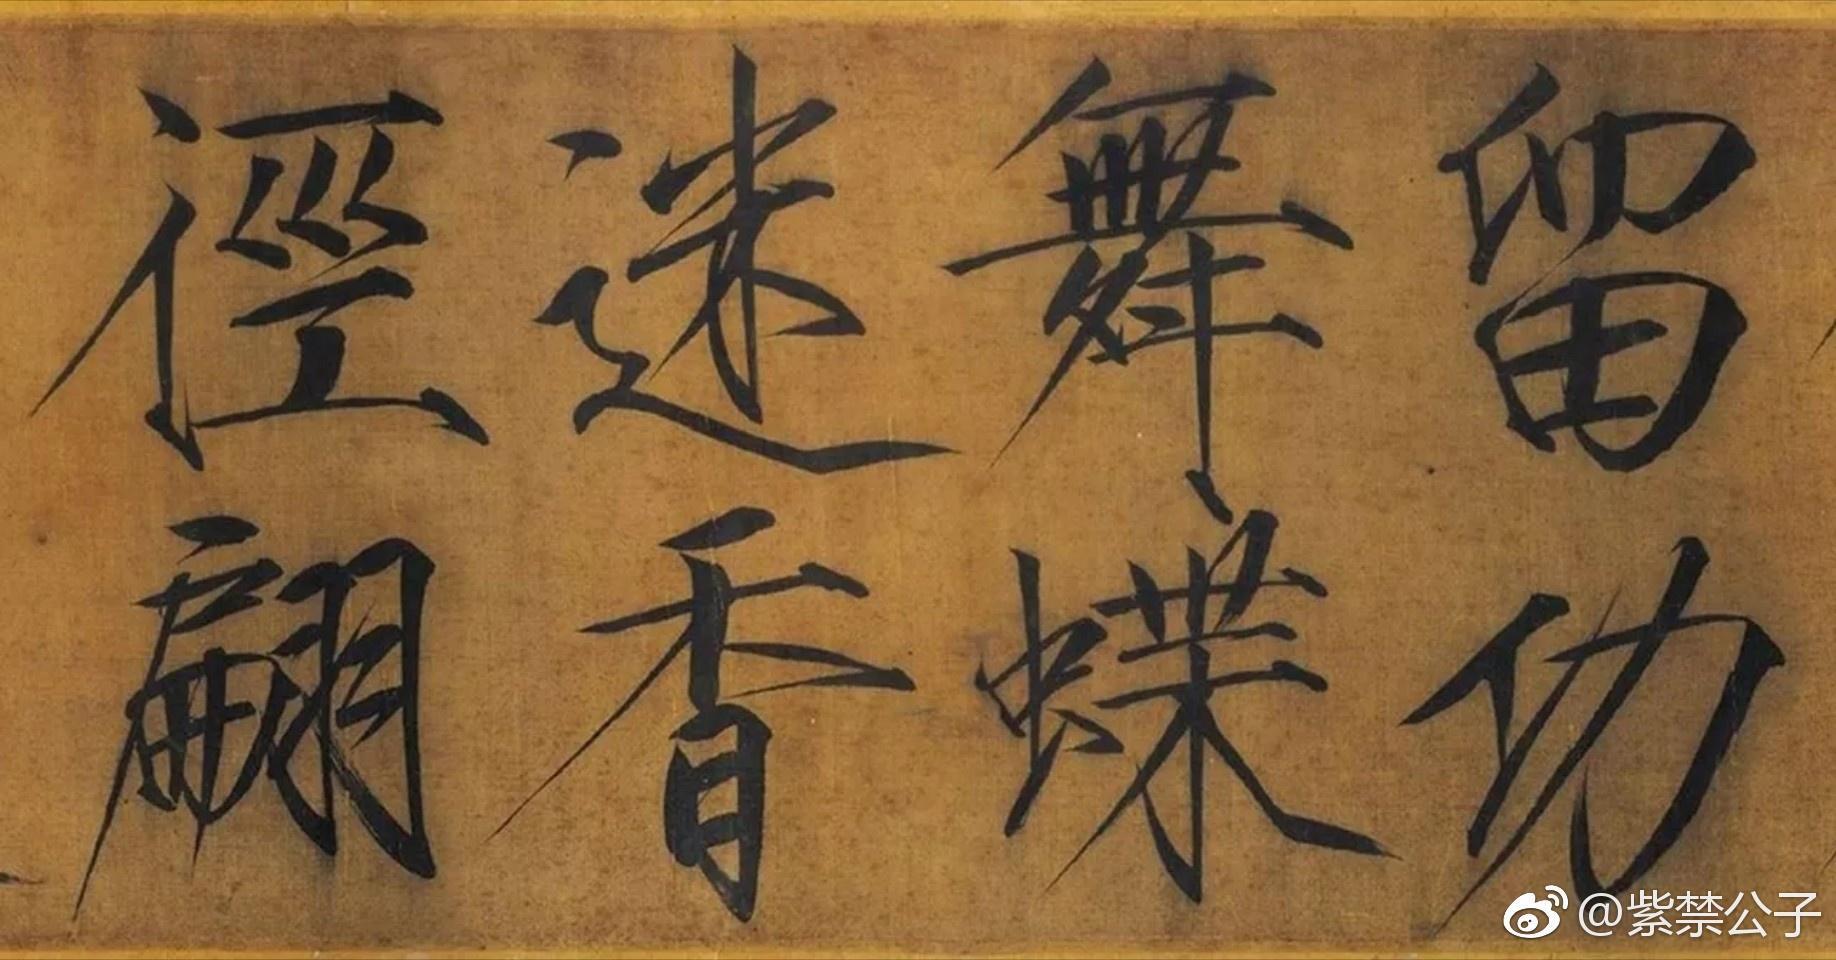 留功
舞蝶
迷香
徑翩
@紫禁公子